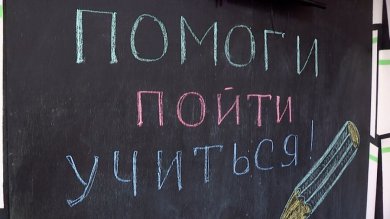 ПОМОГИ
ПОЙТИ
УЧИТЬСЯ!